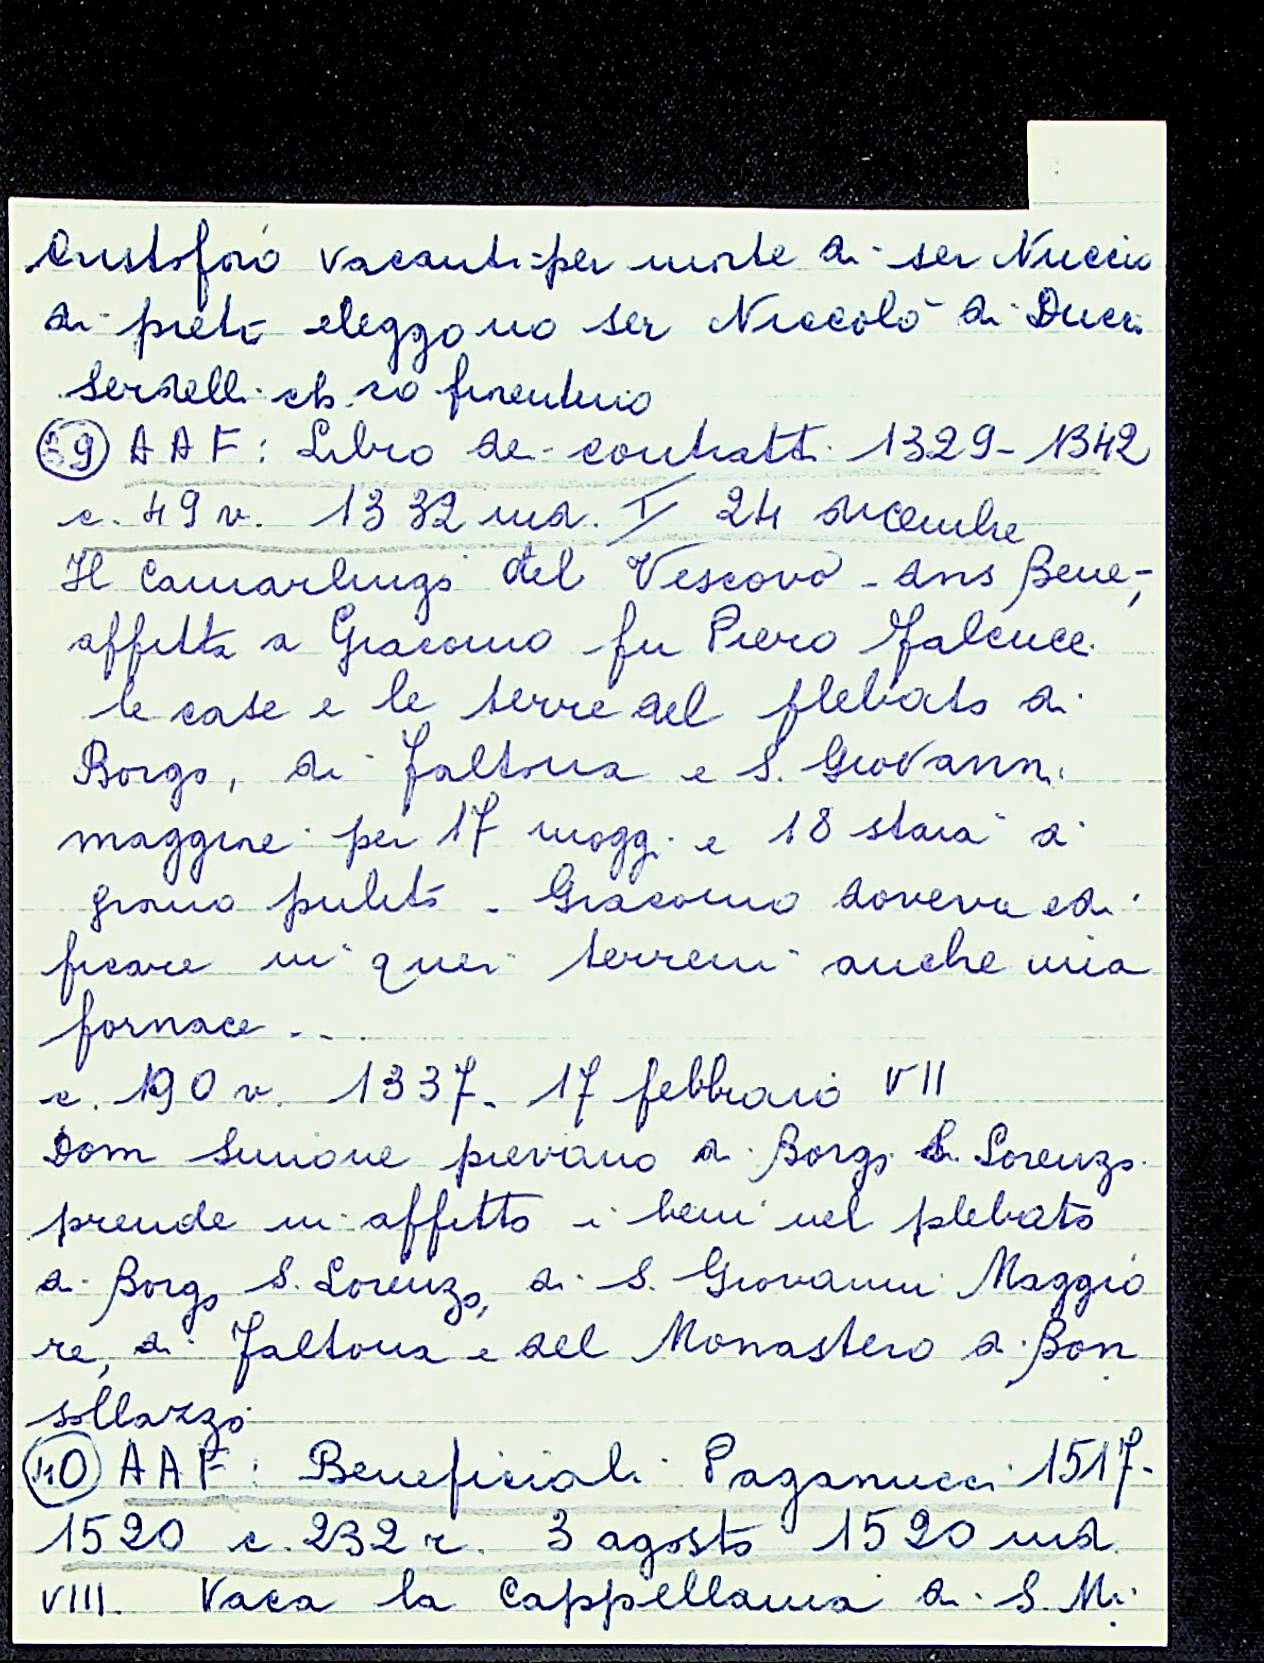 Cristoforo vacante per morte di ser Nuccio
di preto eleggono ser Niccolò di Ducci
serselli ch. co fiorentino
39 AAF: Libro de contratti 1329-1342
c. 49 v. 1332 ind. I 24 dicembre
Il Camarlingo del Vescovo - dns Bene,
affitta a Giacomo fu Piero Falcucci
le case e le terre del plebato di
Borgo, di Faltona e S. Giovanni
maggiore per 17 mogg. e 18 staia di
grano pulito - Giacomo doveva edi
ficare in quei terreni anche una
fornace ...
c. 190 v. 1337 - 17 febbraio VII
Dom Simone pievano di Borgo S. Lorenzo
prende in affitto i beni nel plebato
di Borgo S. Lorenzo, di S. Giovanni Maggio
re, di Faltona e del Monastero di Bon
sollazzo
40 AAF: Beneficiali Paganucci 1517-
1520 c. 232 r. 3 agosto 1520 ind.
VIII. Vaca la Cappellania di S. Mi